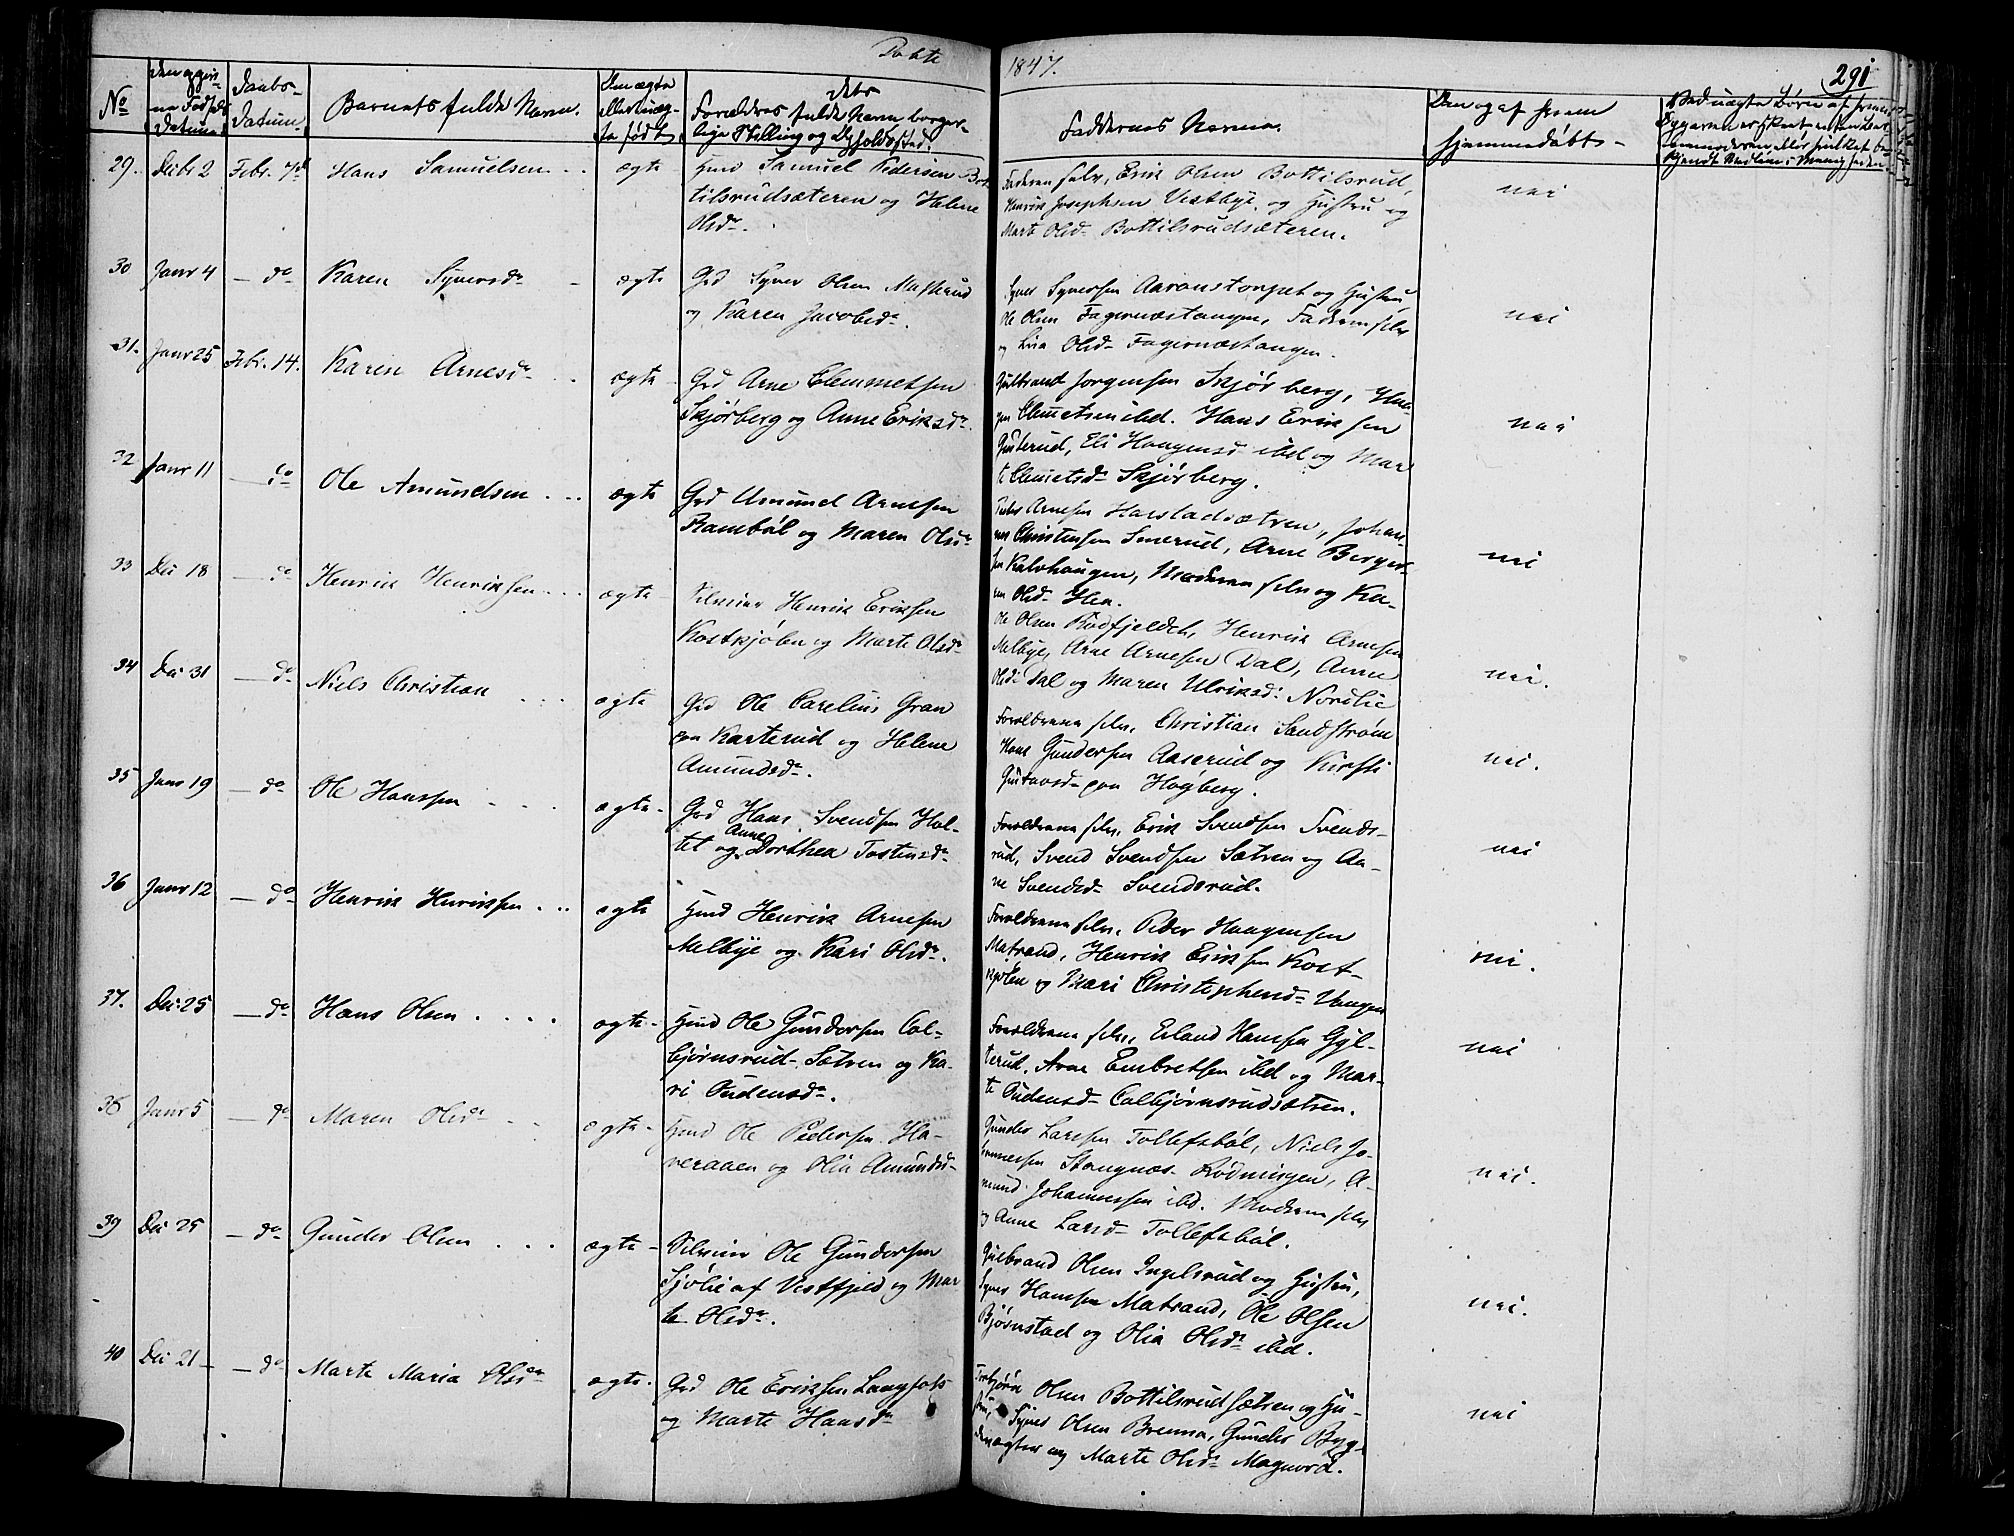 Døbte 1847. 291
No
Den opgivne Fødsels Datum
Daabs-Datum
Barnets fulde Navn.
Om ægte eller uægte født
dets Forældres fulde Navn borgerlige Stilling og Opholdssted.
Faddernes Navne.
hjemmedøbt
29. Debr 2 Febr. 7d Hans Samuelsen ægte Hmd Samuel Pedersen Bottilsrudsæteren og Helene Olsdr. Faderen selv, Erik Olsen Bottilsrud,
Henrik Josephsen Vestbye og Hustru og
Marte Olsd Bottilsrudsæteren.
nei
30 Janr 4 — do Karen Syversdr ægte Grd Syver Olsen Masterud
og Karen Jacobsdr.
Syver Syversen Aaraustorpet og Hustru
Ole Olsen Fagernæstangen, Faderen selv
og Lisa Olsd Fagernæstangen.
nei
31. Janr 25 Febr. 14. Karen Arnesdr ægte Grd Arne Clemmetsen
Skjørberg og Anne Eriksdr.
Gulbrand Jørgensen Skjørberg, Haa-
gen Clemetsen ibd. Hans Eriksen
Gusterud, Eli Haagensd ibd og Mar
te Clemetsdr Skjørberg.
nei
32 Janr 11 — do Ole Amundsen ægte Grd Amund Arnesen
Rambøl og Maren Olsdr
Peder Arnesen Harstadsætren, Johan-
nes Christensen Smerud, Arne Berger-
sen Kalvhaugen, Moderen selv og Ka-
ren Olsd Hea.
nei
33 Du 18 — do Henrik Henriksen ægte Selveier Henrik Eriksen
Kostkjølen og Marte Olsdr
Ole Olsen Rødfjeldet, Henrik Arnesen
Melbye, Arne Arnesen Dal, Anne
Olsd: Dal og Maren Ulriksd: Nordlie
nei.
34 Du 31 — do Niels Christian ægte Grd Ole Carelius Gran
paa Karterud og Helene
Amundsdr.
Forældrene selv, Christian Sandstrøm
Hans Gundersen Aaserud og Kirsti
Gustavsd paa Høgberg.
nei.
35 Janr 19 — do Ole Hanssen ægte Grd Hans Svendsen Hol-
tet og Anne Dorthea Tostensdr
Forældrene selv, Erik Svendsen Svends-
rud, Svend Svendsen Sætren og An-
ne Svendsd Svendsrud.
nei
36 Janr 12 — do Henrik Henriksen ægte Hmd Henrik Arnesen
Melbye og Kari Olsdr.
Forældrene selv, Peder Haagensen
Matrand, Henrik Eriksen Kost-
kjølen og Mari Christophersd Vangen
nei.
37. Du: 25 — do Hans Olsen ægte Hmd Ole Gundersen Col-
bjørnsrud Sætren og Ka-
ri Oudensdr.
Forældrene selv, Erland Hansen Gyl-
terud, Arne Embretsen ibd og Mar-
te Oudensd Colbjørnsrudsætren.
nei
38 Janr 5 — do Maren Olsdr ægte Hmd Ole Pedersen Ha-
veraaen og Olia Amundsd
Gunder Larsen Tollefsbøl, Niels Jo-
hannessen Stangnæs Rødningen, A-
mund Johannessen ibd. Moderen selv
og Anne Larsd Tollefsbøl.
nei.
39 Du 25 — do Gunder Olsen ægte Selveier Ole Gundersen
Sjølie af Vestfjeld og Mar
te Olsdr.
Gulbrand Olsen Ingelsrud og Hustru,
Syver Hansen Matrand, Ole Olsen
Bjørnstad og Olia Olsdr ibd.
nei.
40 Du 21 — do Marte Maria Olsdr ægte Grd Ole Eriksen Langfos
og Marte Hansdr
Torbjørn Olsen Bottilsrudsætren og Hu-
stru, Syver Olsen Brenna, Gunder
og Marte Olsdr Magnord.
nei